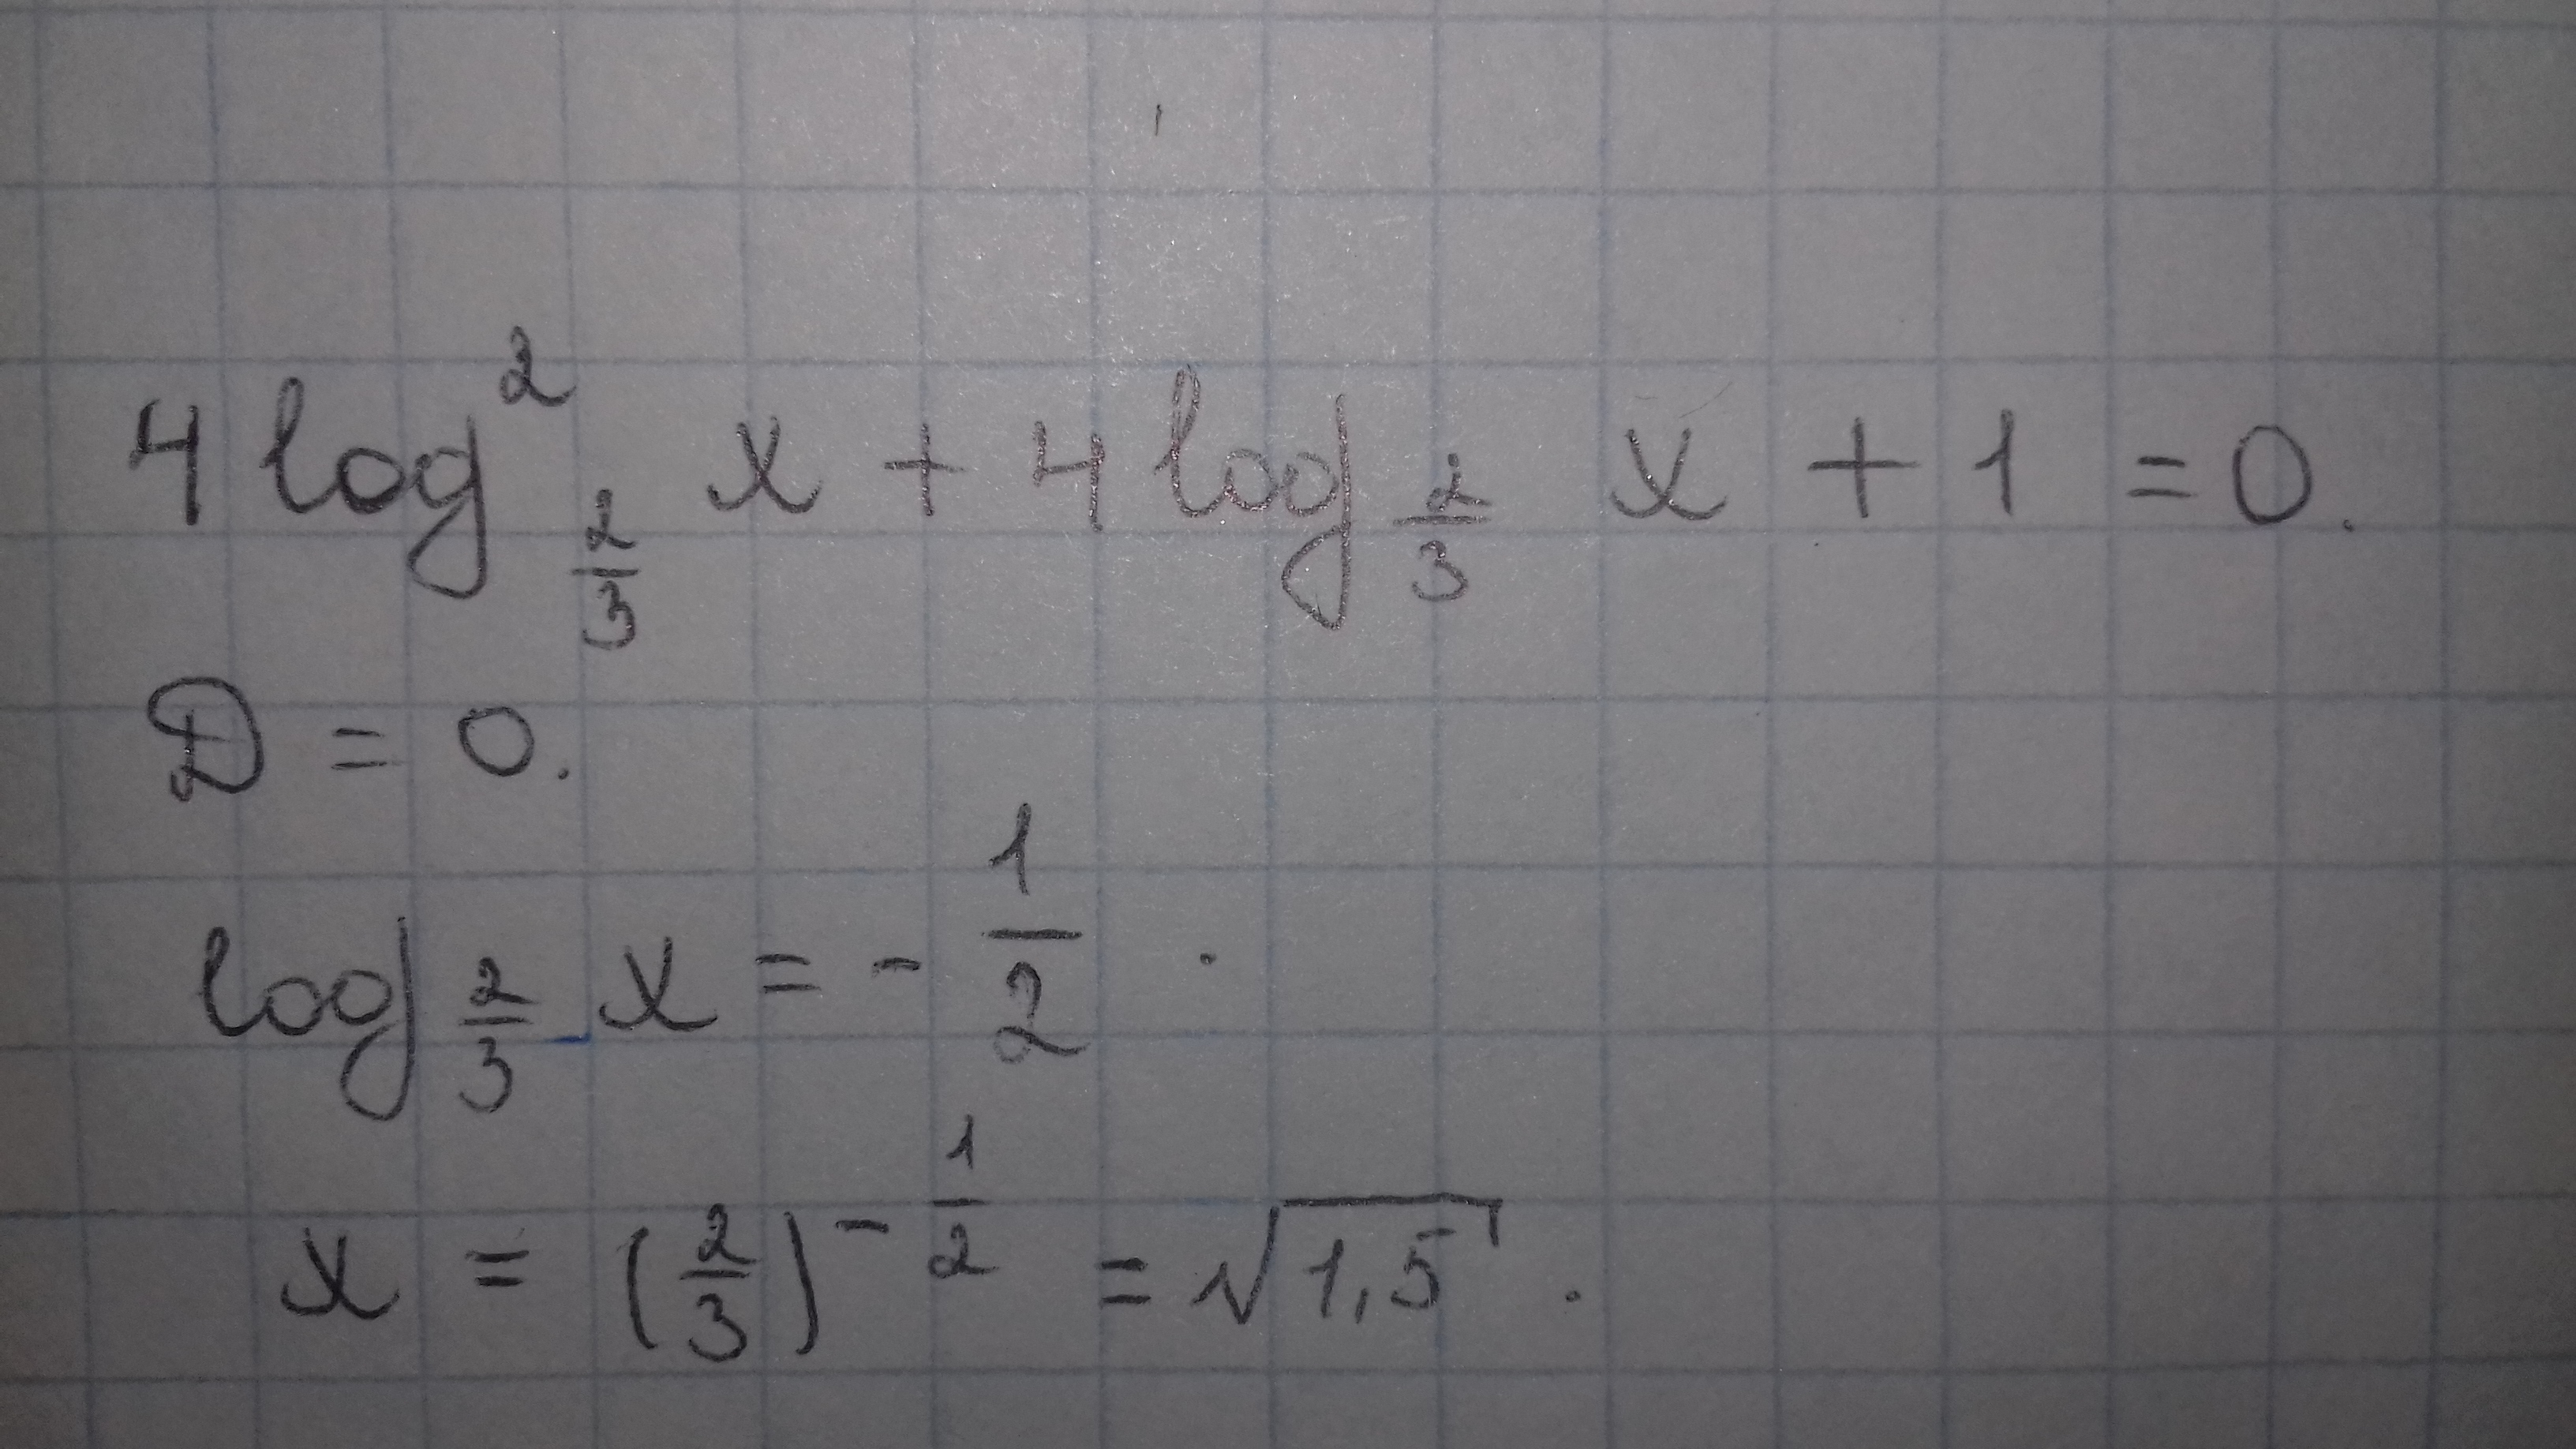 4 log²_{2/3} x + 4 log_{2/3} x + 1 = 0.
D = 0.
log_{2/3} x = - 1/2 .
x = (2/3)^{- 1/2} = √1,5 .